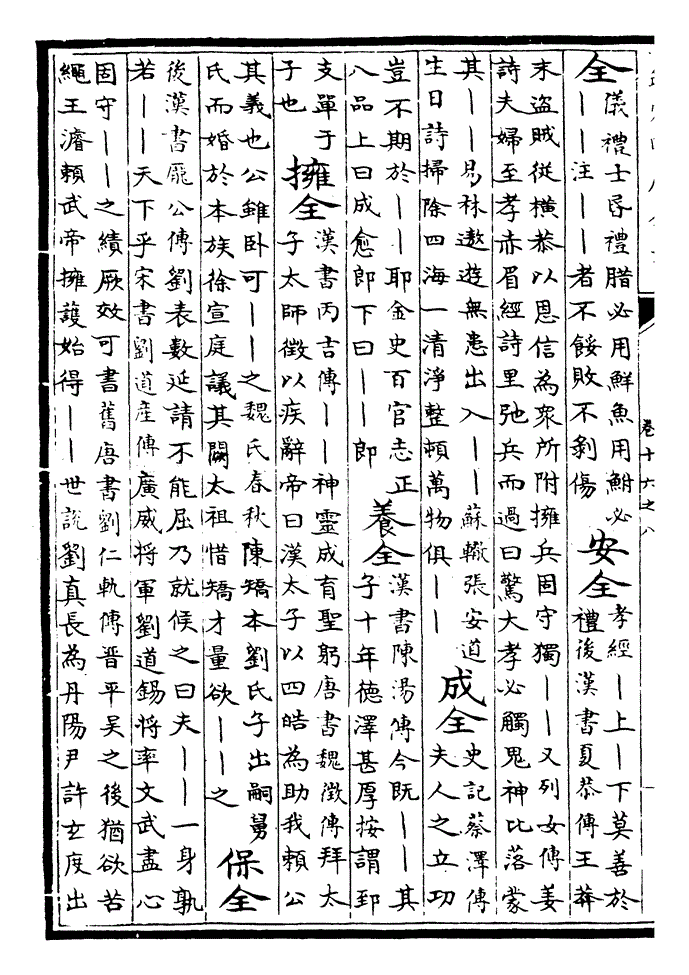 全
儀禮士昏禮腊必用鮮魚用鮒必
——注——者不餒敗不剝傷
安全
孝經—上—下莫善於
禮後漢書夏恭傳王莽
末盜賊從橫恭以恩信為衆所附擁兵固守獨——又列女傳姜
詩夫婦至孝赤眉經詩里弛兵而過曰驚大孝必觸鬼神比落蒙
其——易林遨遊無患出入——蘇轍張安道
生日詩掃除四海一清淨整頓萬物俱——
成全
史記蔡澤傳
夫人之立功
豈不期於——耶金史百官志正
八品上曰成愈郎下曰——郎
養全
漢書陳湯傳今既——其
子十年徳澤甚厚按謂郅
支單于
子也
擁全
漢書丙吉傳——神靈成育聖躬唐書魏徵傳拜太
子太師徵以疾辭帝曰漢太子以四皓為助我賴公
其義也公雖卧可——之魏氏春秋陳矯本劉氏子出嗣舅
氏而婚於本族徐宣庭議其闕太祖惜矯才量欲——之
保全
後漢書龐公傳劉表數延請不能屈乃就候之曰夫——一身孰
若——天下乎宋書劉道産傳廣威将軍劉道錫将率文武盡心
固守——之績厥效可書舊唐書劉仁軌傳晋平吳之後猶欲苦
繩王濬賴武帝擁護始得——世說劉真長為丹陽尹許玄度出
卷十六之八